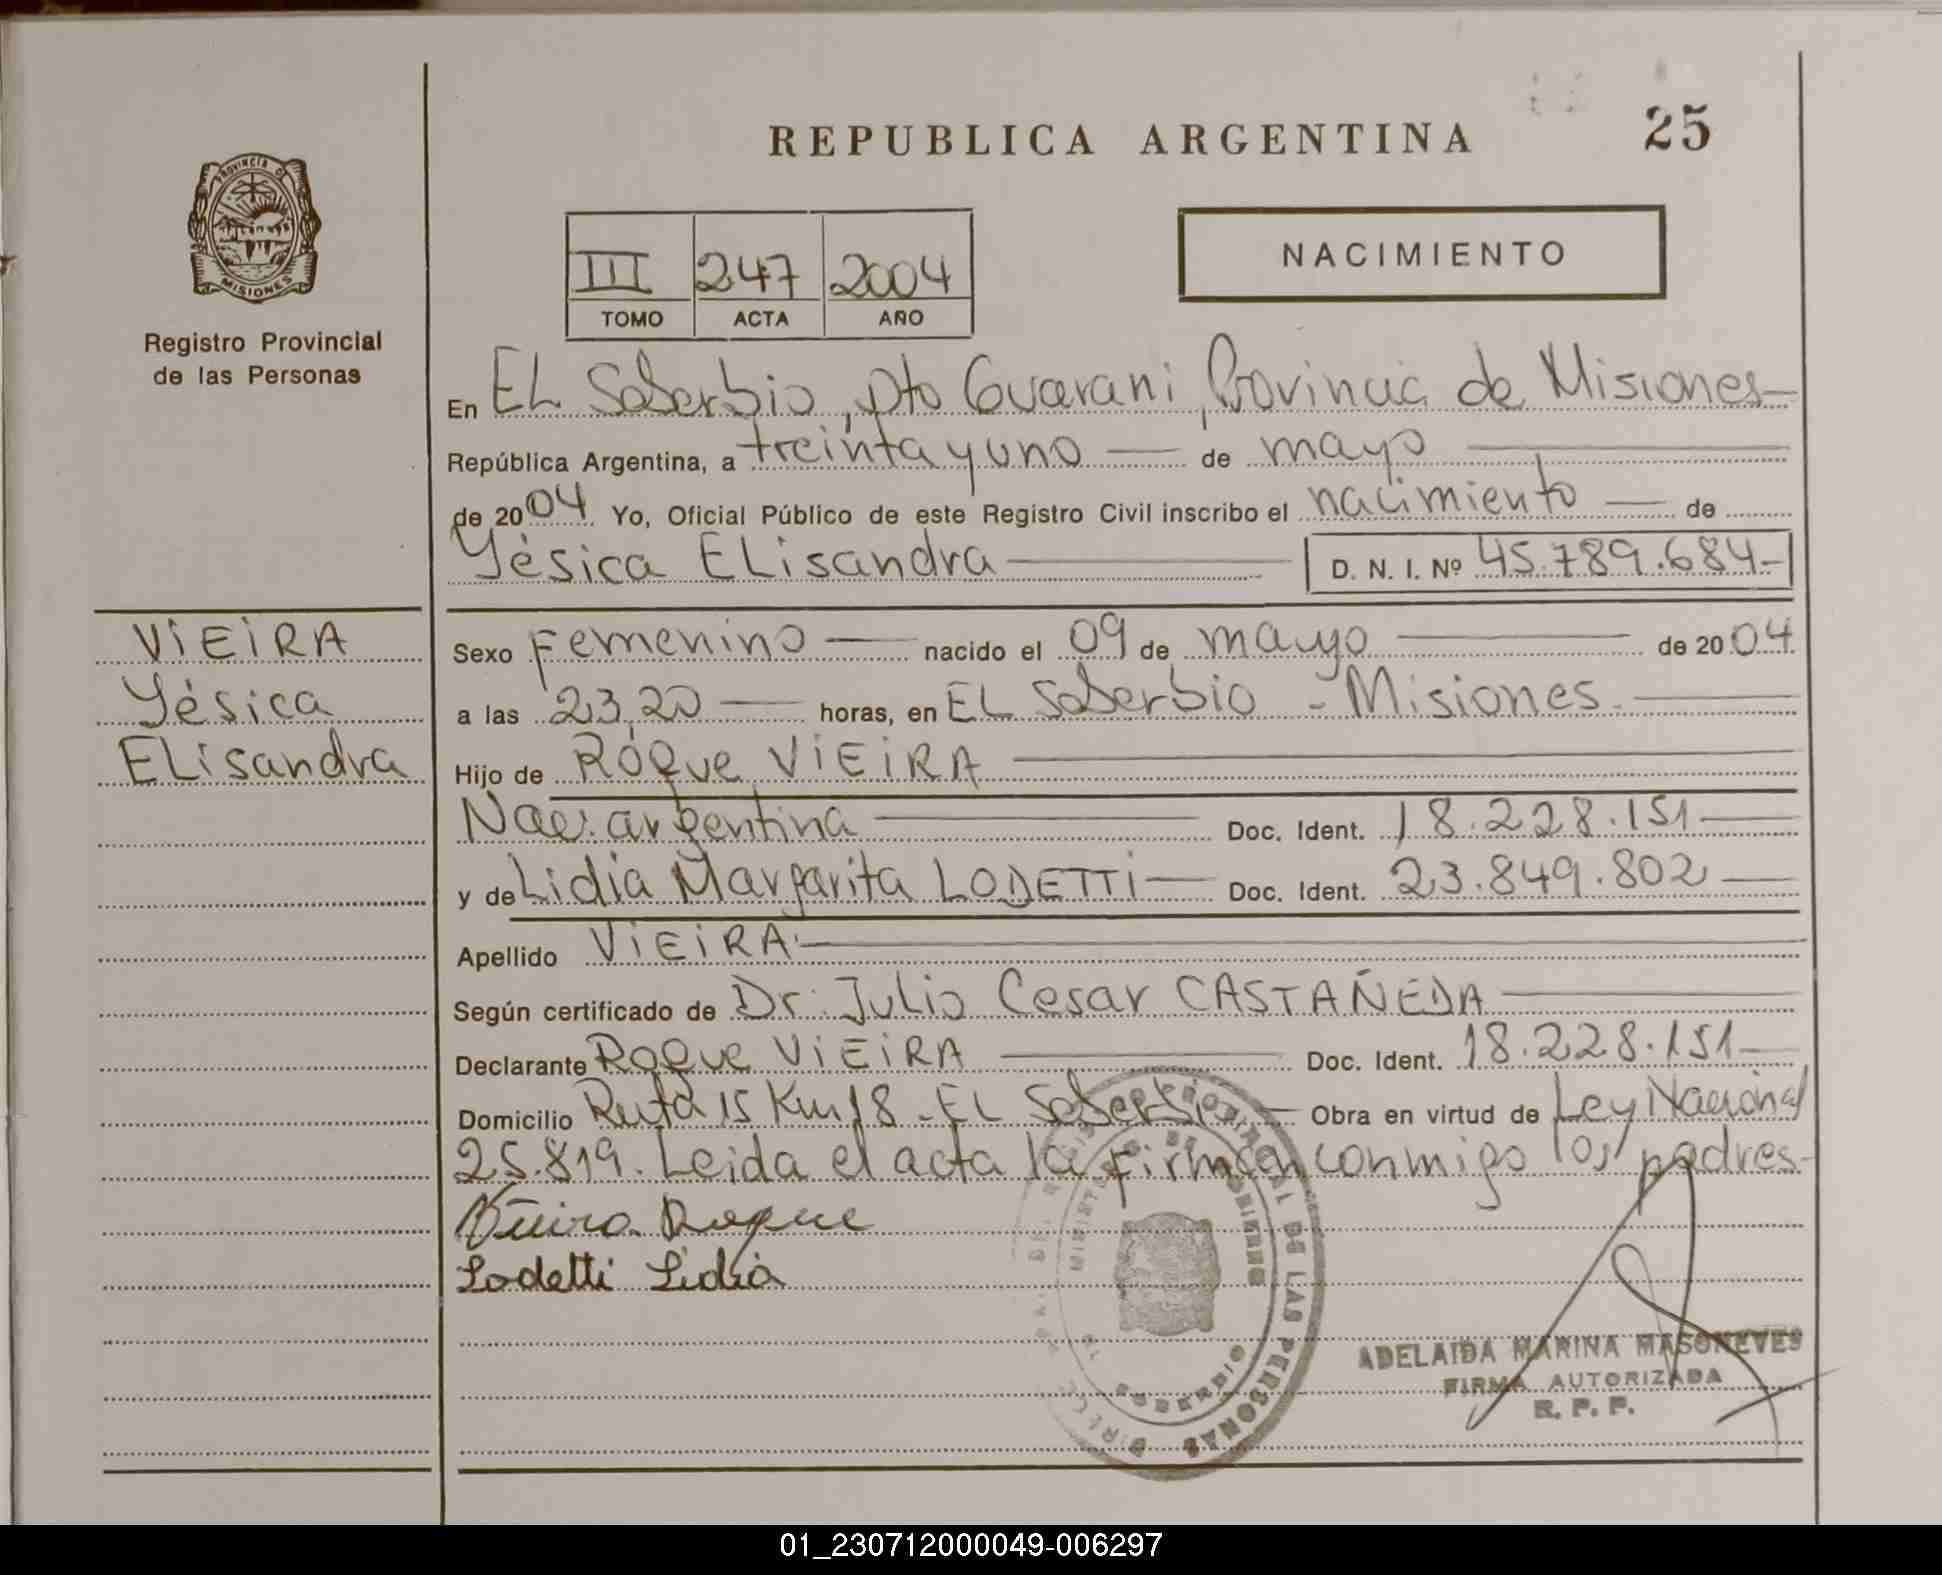 REPUBLICA ARGENTINA
25
PROVINCIA DE
MISIONES
Registro Provincial
de las Personas
III 247 2004
TOMO ACTA AÑO
NACIMIENTO
En EL Soberbio, Dto Guarani, Provincia de Misiones
República Argentina, a treinta y uno de mayo
de 2004 Yo, Oficial Público de este Registro Civil inscribo el nacimiento de
Yésica ELisandra D. N. I. Nº 45.789.684
VIEIRA
Yésica
ELisandra
Sexo Femenino nacido el 09 de mayo de 2004
a las 23,20 horas, en EL Soberbio - Misiones
Hijo de Roque VIEIRA
Nac: argentina Doc. Ident. 18.228.151
y de Lidia Margarita LODETTI Doc. Ident. 23.849.802
Apellido VIEIRA
Según certificado de Dr. Julio Cesar CASTAÑEDA
Declarante Roque VIEIRA Doc. Ident. 18.228.151
Domicilio Ruta 15 Km 18 - EL Soberbio Obra en virtud de Ley Nacional
25.819. Leida el acta la firman conmigo los padres
Vieira Roque
Lodetti Lidia
DE LAS PERSONAS
ADELAIDA MARINA MASONEVES
FIRMA AUTORIZADA
R. P. P.
01_230712000049-006297